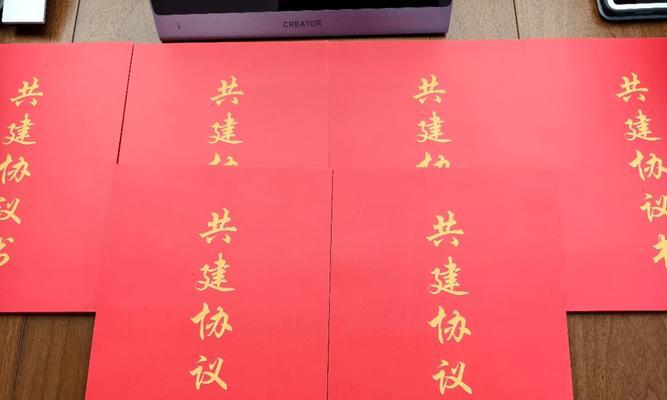 CREATOR
共建协议书
共建
共建
共建协议
共建协议
共建协议